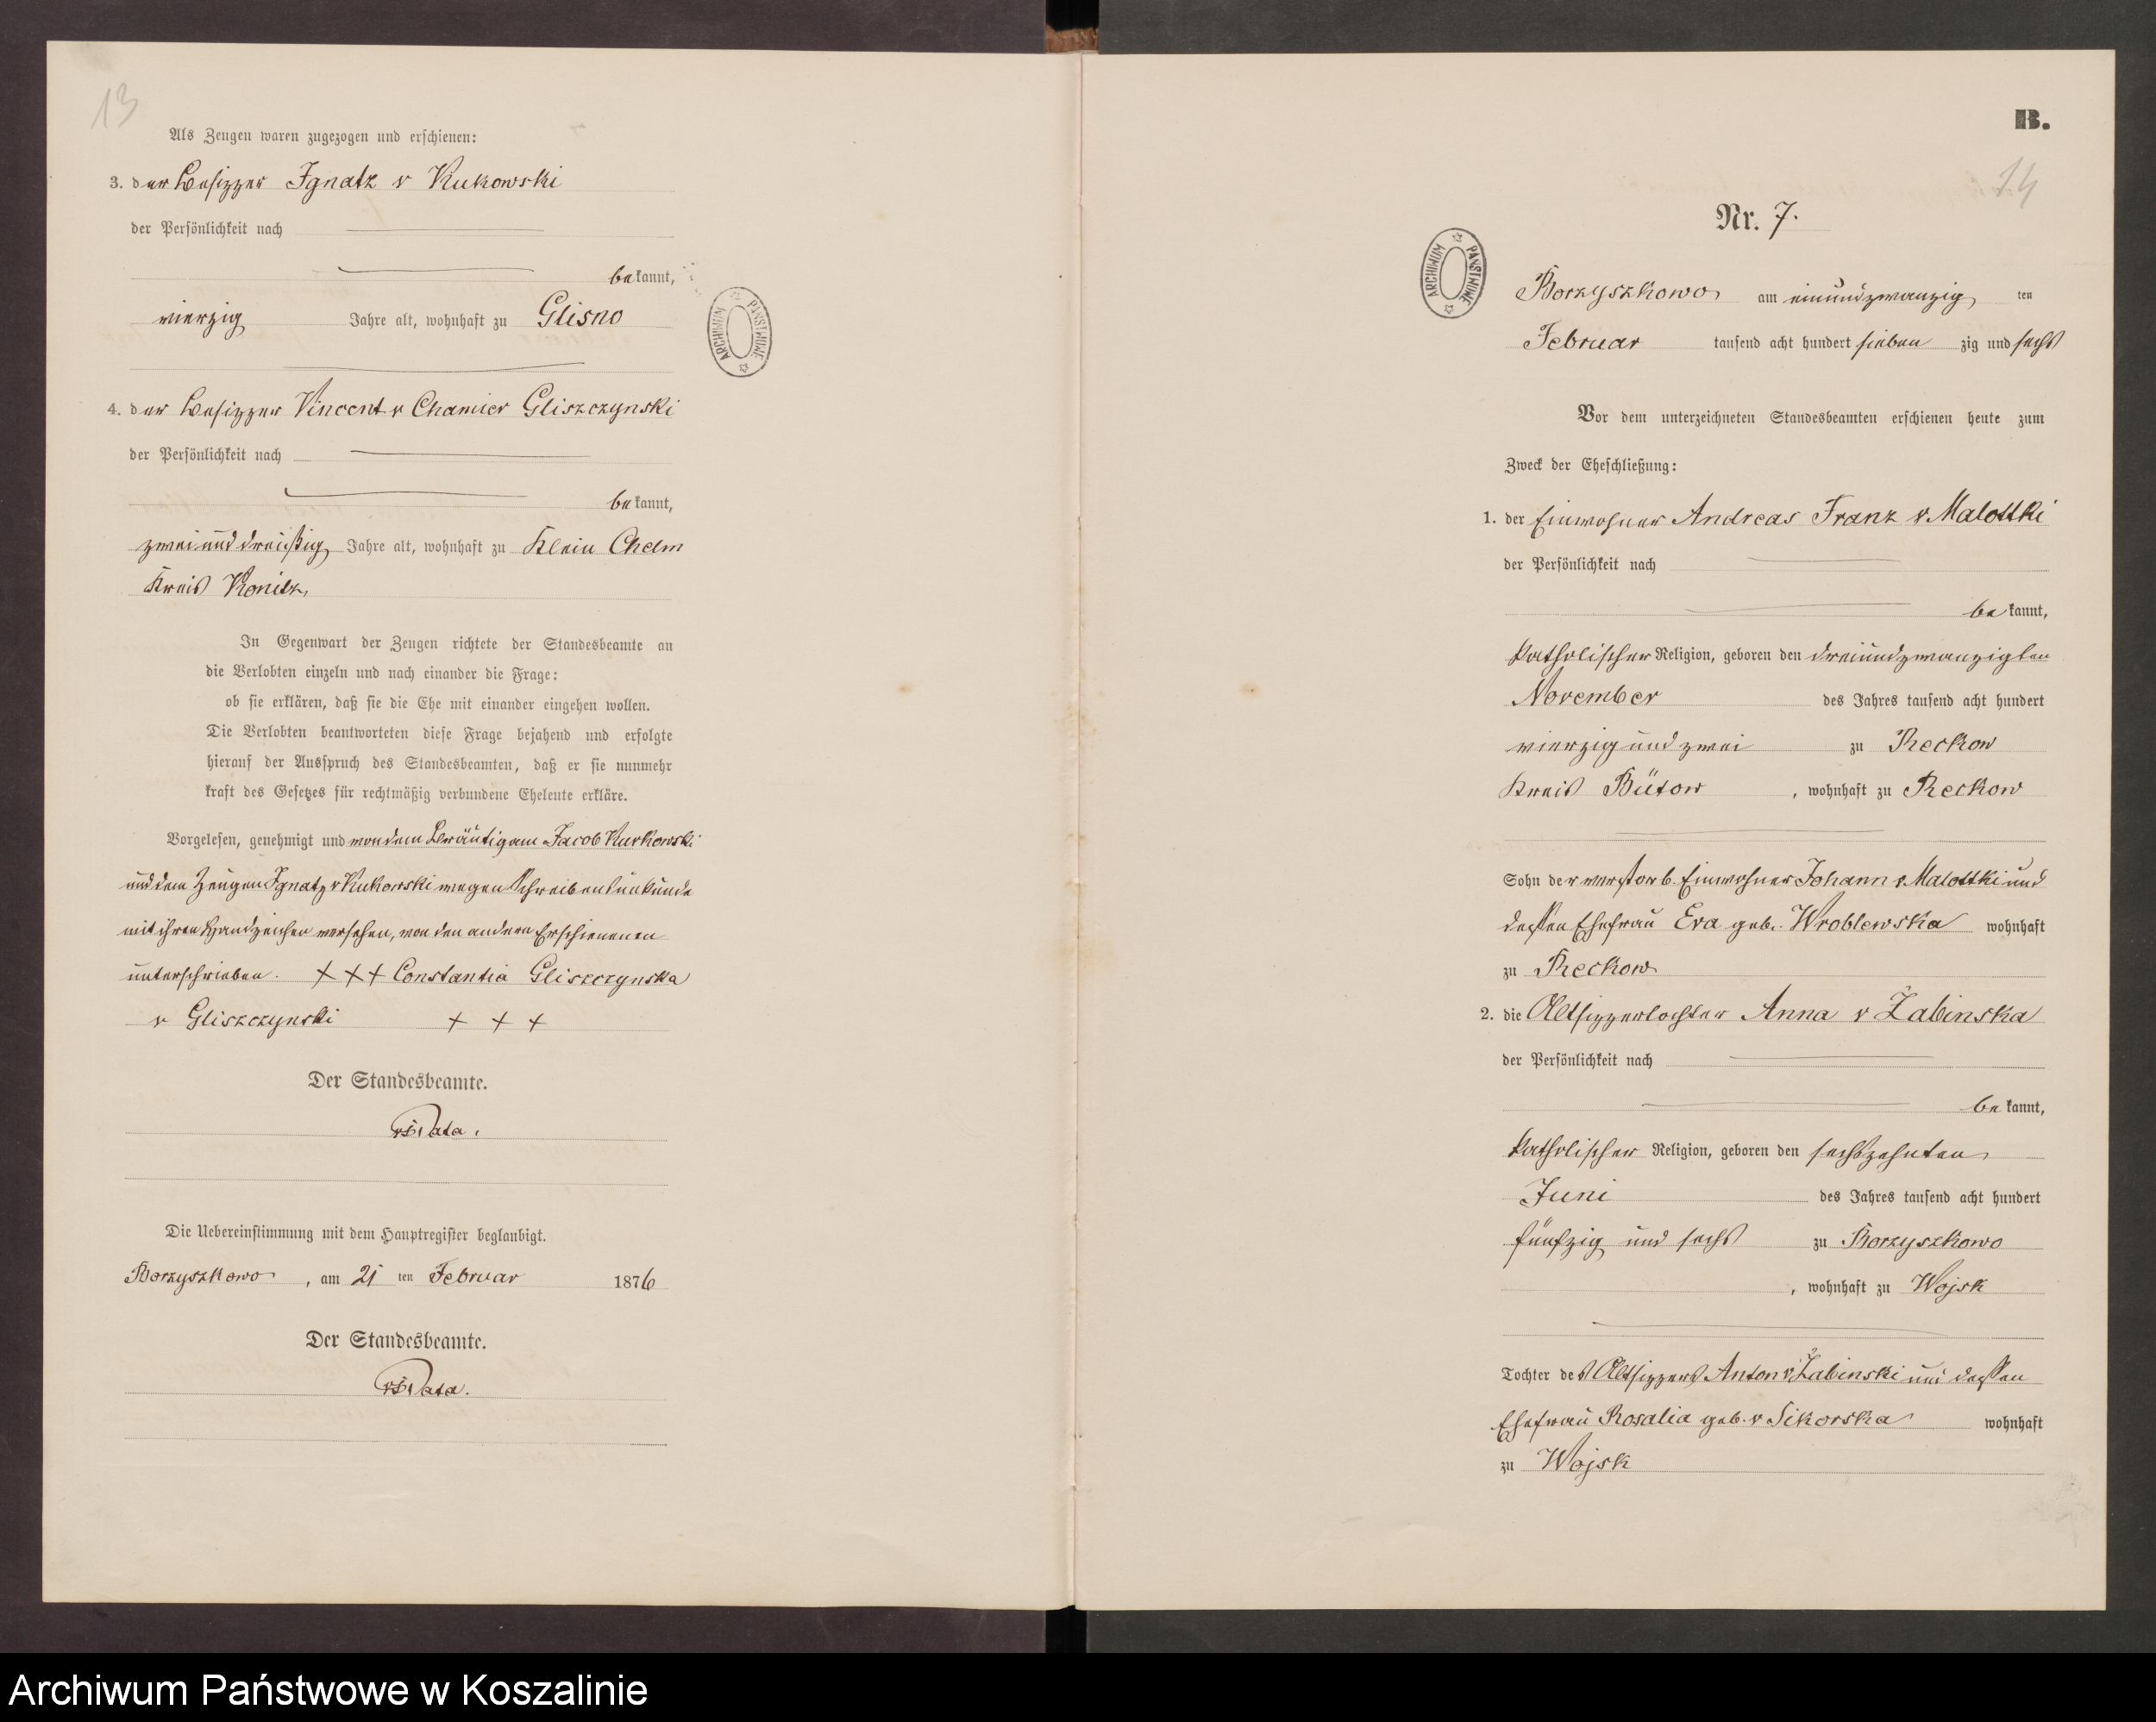 13
Als Zeugen waren zugezogen und erschienen:
3. der Besizzer Ignatz v Kukowski
der Persönlichkeit nach
bekannt,
vierzig Jahre alt, wohnhaft zu Glisno
4. der Besizzer Vincent v Chamier Gliszczynski
der Persönlichkeit nach
bekannt,
zwei und dreißig Jahre alt, wohnhaft zu Klein Chelm
Kreis Konitz,
In Gegenwart der Zeugen richtete der Standesbeamte an
die Verlobten einzeln und nach einander die Frage:
ob sie erklären, daß sie die Ehe mit einander eingehen wollen.
Die Verlobten beantworteten diese Frage bejahend und erfolgte
hierauf der Ausspruch des Standesbeamten, daß er sie nunmehr
kraft des Gesetzes für rechtmäßig verbundene Eheleute erkläre.
Vorgelesen, genehmigt und von dem Bräutigam Jacob Kurkowski
und dem Zeugen Ignatz v Kukowski wegen Schreibensunkunde
mit ihren Handzeichen versehen, von den andern Erschienenen
unterschrieben. +++ Constantia Gliszczynska
v Gliszczynski + + +
Der Standesbeamte.
Die Uebereinstimmung mit dem Hauptregister beglaubigt.
Borzyszkowo, am 21 ten Februar 1876
Der Standesbeamte.
ARCHIWUM PAŃSTWOWE
B.
14
Nr. 7.
ARCHIWUM PAŃSTWOWE
Borzyszkowo am einundzwanzig ten
Februar tausend acht hundert siebenzig und sechs
Vor dem unterzeichneten Standesbeamten erschienen heute zum
Zweck der Eheschließung:
1. der Einwohner Andreas Franz v Malottki
der Persönlichkeit nach
bekannt,
katholischer Religion, geboren den dreiundzwanzigten
November des Jahres tausend acht hundert
vierzig und zwei zu Reckow
Kreis Bütow, wohnhaft zu Reckow
Sohn der verstorb. Einwohner Johann v Malottki und
dessen Ehefrau Eva geb. Wroblewska wohnhaft
zu Reckow
2. die Altsizzertochter Anna v Żabinska
der Persönlichkeit nach
bekannt,
katholischer Religion, geboren den sechszehnten
Juni des Jahres tausend acht hundert
fünfzig und sechs zu Borzyszkowo
, wohnhaft zu Wojsk
Tochter des Altsizzers Anton v Żabinski und dessen
Ehefrau Rosalia geb. v Sikorska wohnhaft
zu Wojsk
Archiwum Państwowe w Koszalinie